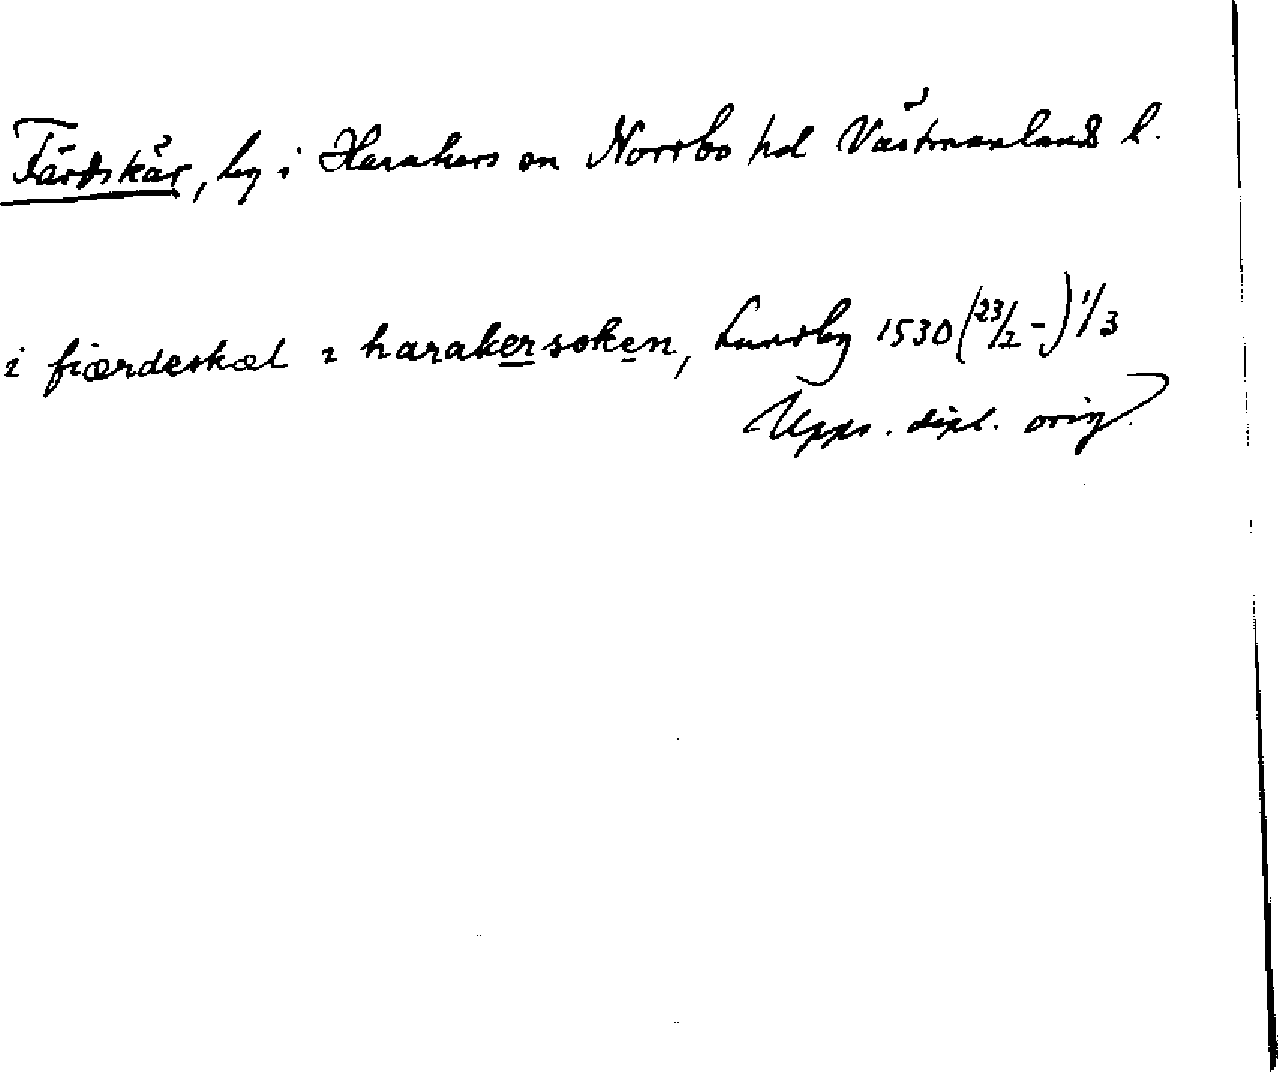 Färdskär, by i Harakers sn Norrbo hd Västmanlands l.
i fiærdeskæl i harakersoken, Lundby 1530 (23/2 -) 1/3
Upps. dipl. orig.